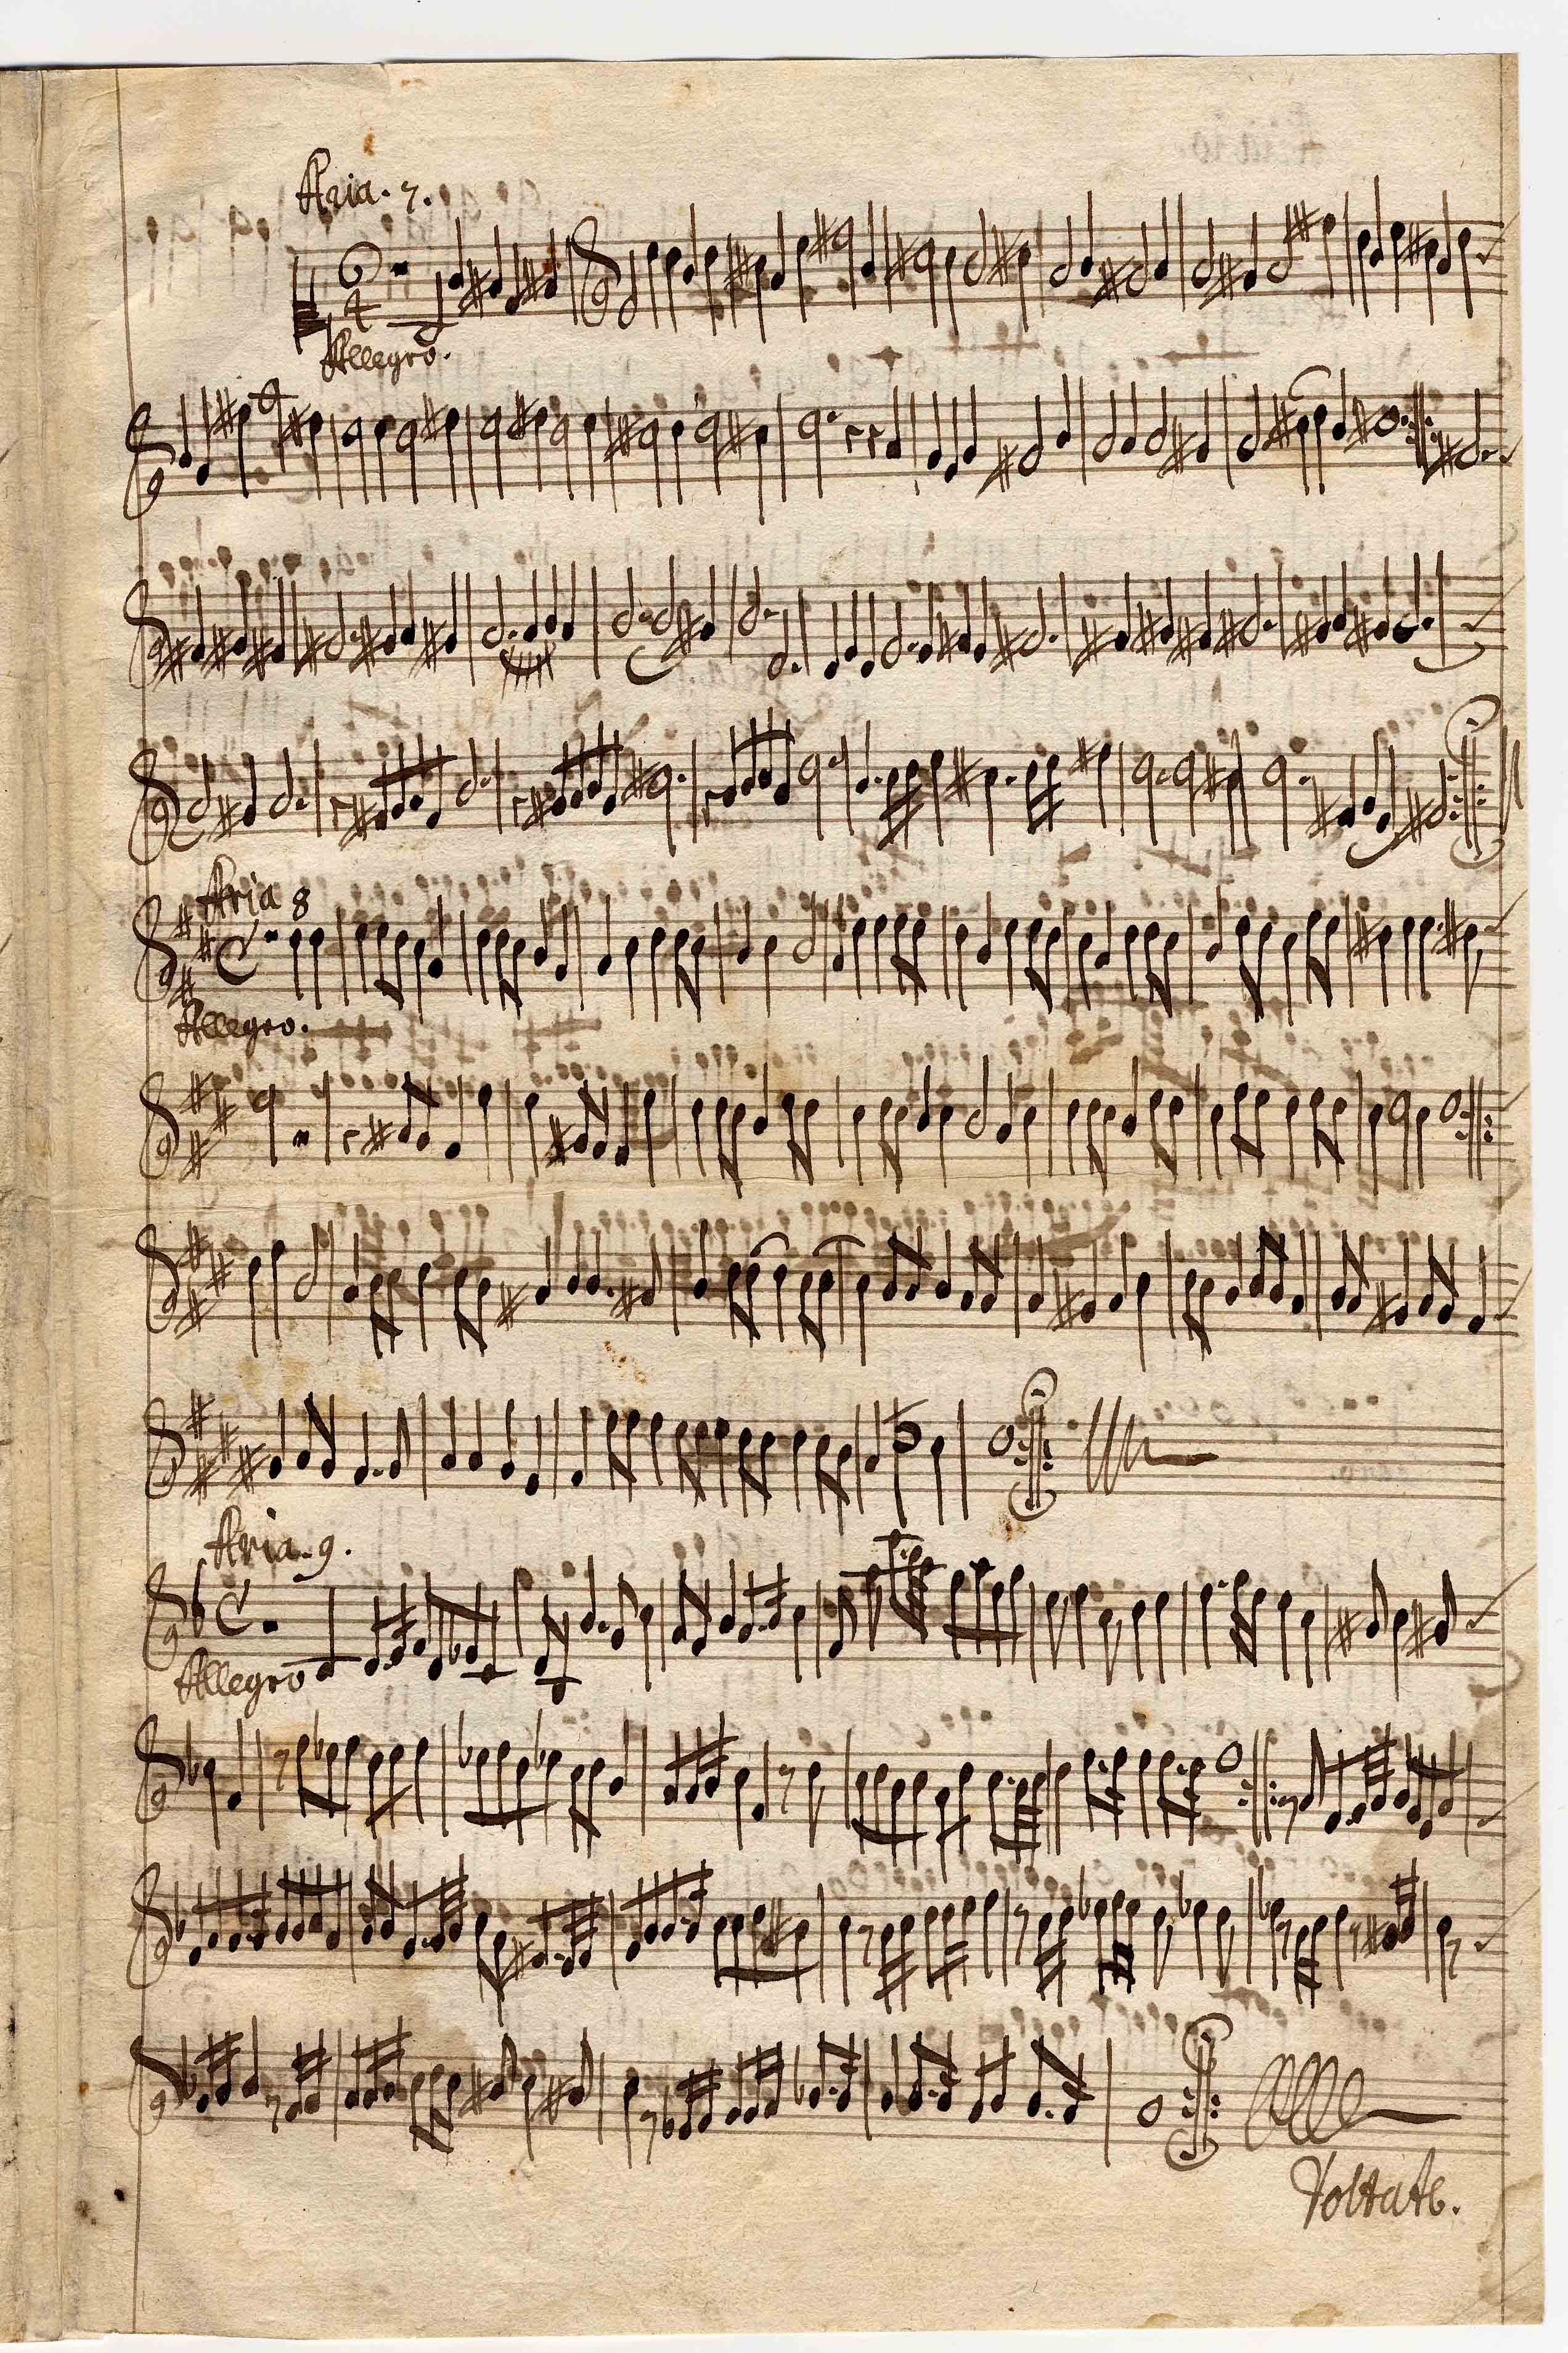 Aria. 7.
6
4
Allegro.
Aria 8
Allegro.
Aria. 9.
Allegro
Voltate.